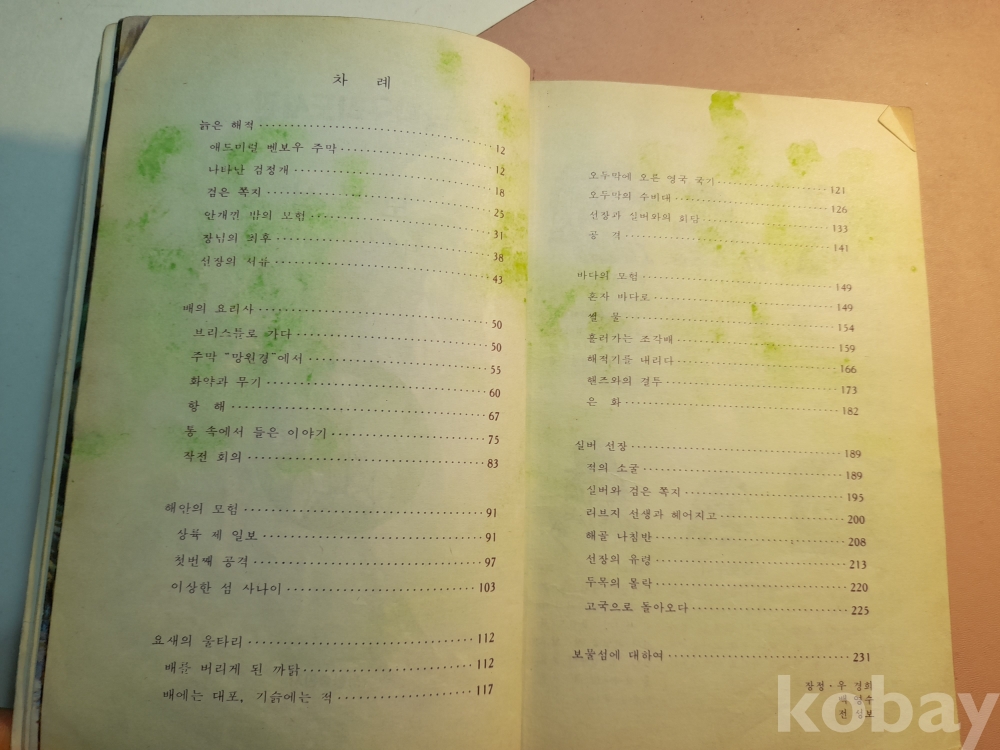 차 례
늙은 해적 12
애드미럴 벤보우 주막 12
나타난 검정개 18
검은 쪽지 25
안개낀 밤의 모험 31
장님의 최후 38
선장의 서류 43
배의 요리사 50
브리스틀로 가다 50
주막 “망원경”에서 55
화약과 무기 60
항 해 67
통 속에서 들은 이야기 75
작전 회의 83
해안의 모험 91
상륙 제 일보 91
첫번째 공격 97
이상한 섬 사나이 103
요새의 울타리 112
배를 버리게 된 까닭 112
배에는 대포, 기슭에는 적 117
오두막에 오른 영국 국기 121
오두막의 수비대 126
선장과 실버와의 회담 133
공 격 141
바다의 모험 149
혼자 바다로 149
썰 물 154
흘러가는 조각배 159
해적기를 내리다 166
핸즈와의 결투 173
은 화 182
실버 선장 189
적의 소굴 189
실버와 검은 쪽지 195
리브지 선생과 헤어지고 200
해골 나침반 208
선장의 유령 213
두목의 몰락 220
고국으로 돌아오다 225
보물섬에 대하여 231
장정·우 경희
백 영수
전 성보
kobay